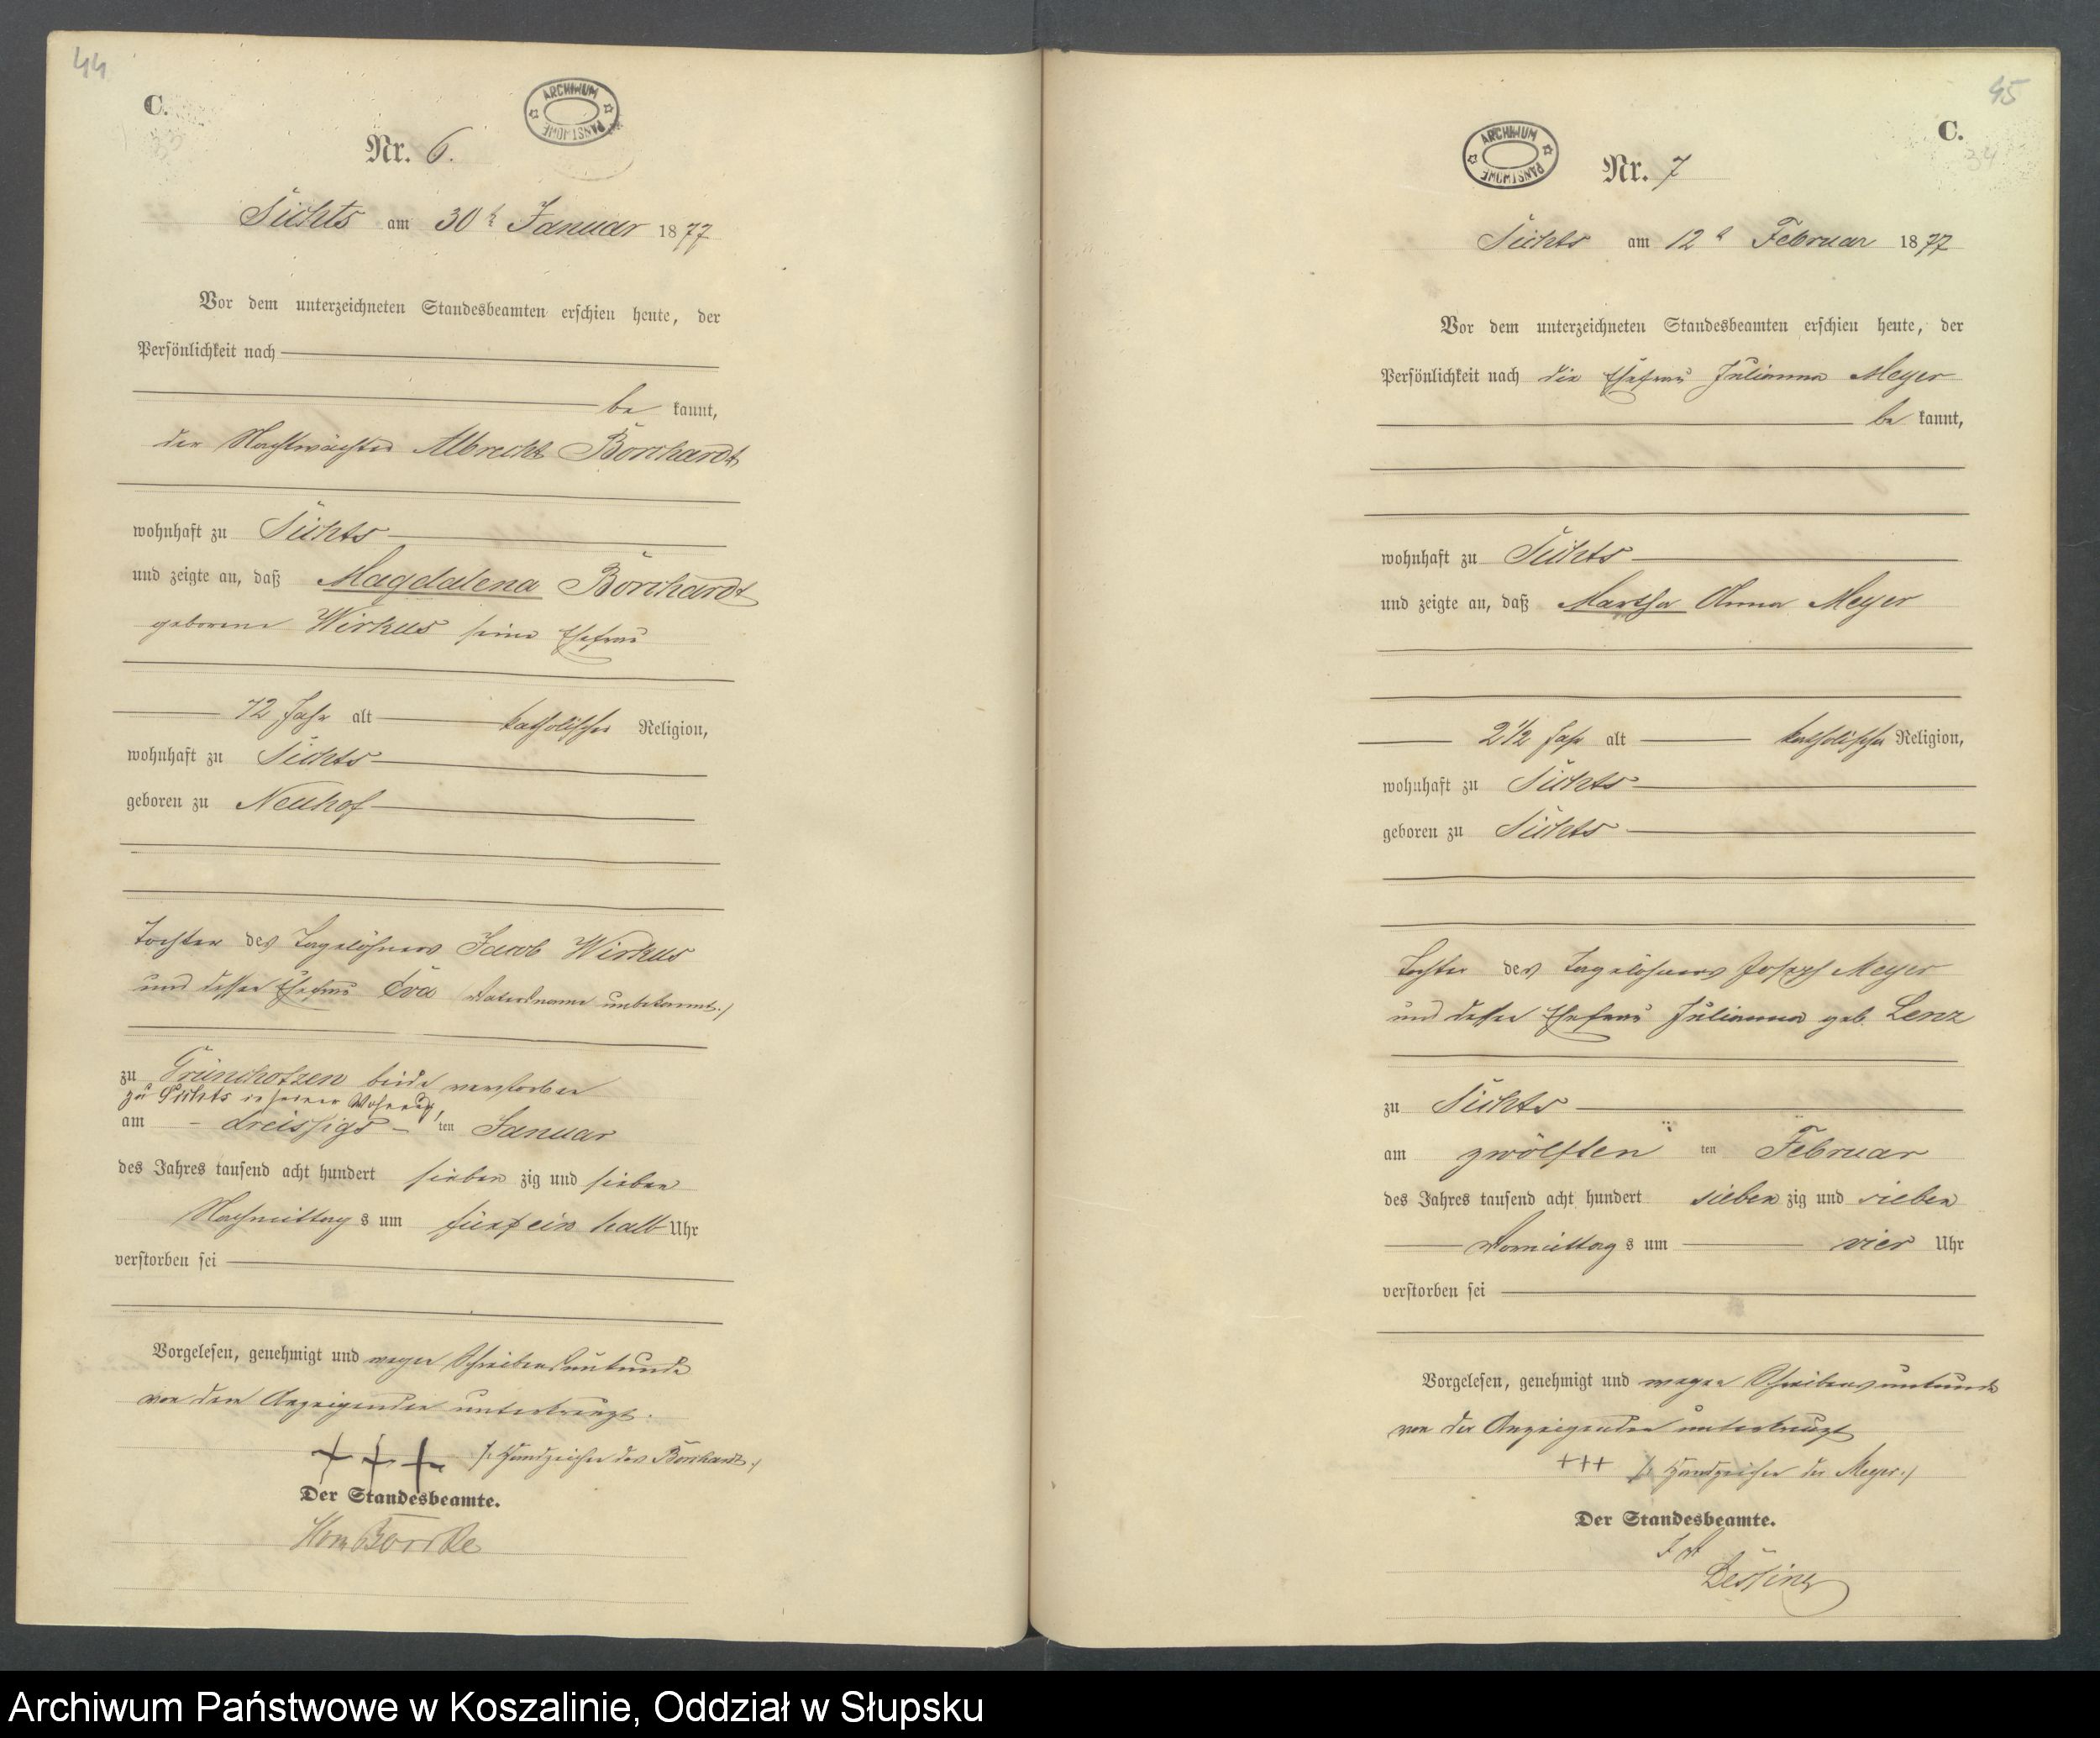 44
C.
33
ARCHIWUM PAŃSTWOWE
Nr. 6.
Sichts am 30t Januar 1877
Vor dem unterzeichneten Standesbeamten erschien heute, der
Persönlichkeit nach
be kannt,
der Nachtwächter Albrecht Borchardt
wohnhaft zu Sichts
und zeigte an, daß Magdalena Borchardt
geborene Wirkus seine Ehefrau
72 Jahr alt katholischer Religion,
wohnhaft zu Sichts
geboren zu Neuhof
Tochter des Tagelöhners Jacob Wirkus
und dessen Ehefrau Eva (Vatersname unbekannt.)
zu Grünchotzen beide verstorben
zu Sichts in seiner Wohnung,
am - dreissigs - ten Januar
des Jahres tausend acht hundert sieben zig und sieben
Nachmittag s um fünf ein halb Uhr
verstorben sei
Vorgelesen, genehmigt und wegen Schreibensunkunde
von dem Anzeigenden unterkreuzt.
+ + + /: Handzeichen des Borchardt :/
Der Standesbeamte.
45
C.
34
ARCHIWUM PAŃSTWOWE
Nr. 7
Sichts am 12t Februar 1877
Vor dem unterzeichneten Standesbeamten erschien heute, der
Persönlichkeit nach die Ehefrau Julianna Meyer
be kannt,
wohnhaft zu Sichts
und zeigte an, daß Martha Anna Meyer
2 1/2 Jahr alt katholischer Religion,
wohnhaft zu Sichts
geboren zu Sichts
Tochter des Tagelöhners Joseph Meyer
und dessen Ehefrau Julianna geb. Lenz
zu Sichts
am zwölften ten Februar
des Jahres tausend acht hundert sieben zig und sieben
Vormittag s um vier Uhr
verstorben sei
Vorgelesen, genehmigt und wegen Schreibensunkunde
von der Anzeigenden unterkreuzt
+++ /: Handzeichen der Meyer :/
Der Standesbeamte.
Archiwum Państwowe w Koszalinie, Oddział w Słupsku